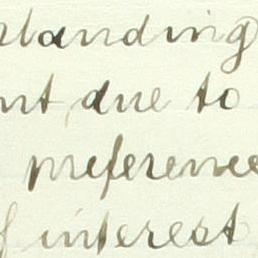 standing
nt due to
preference
f interest